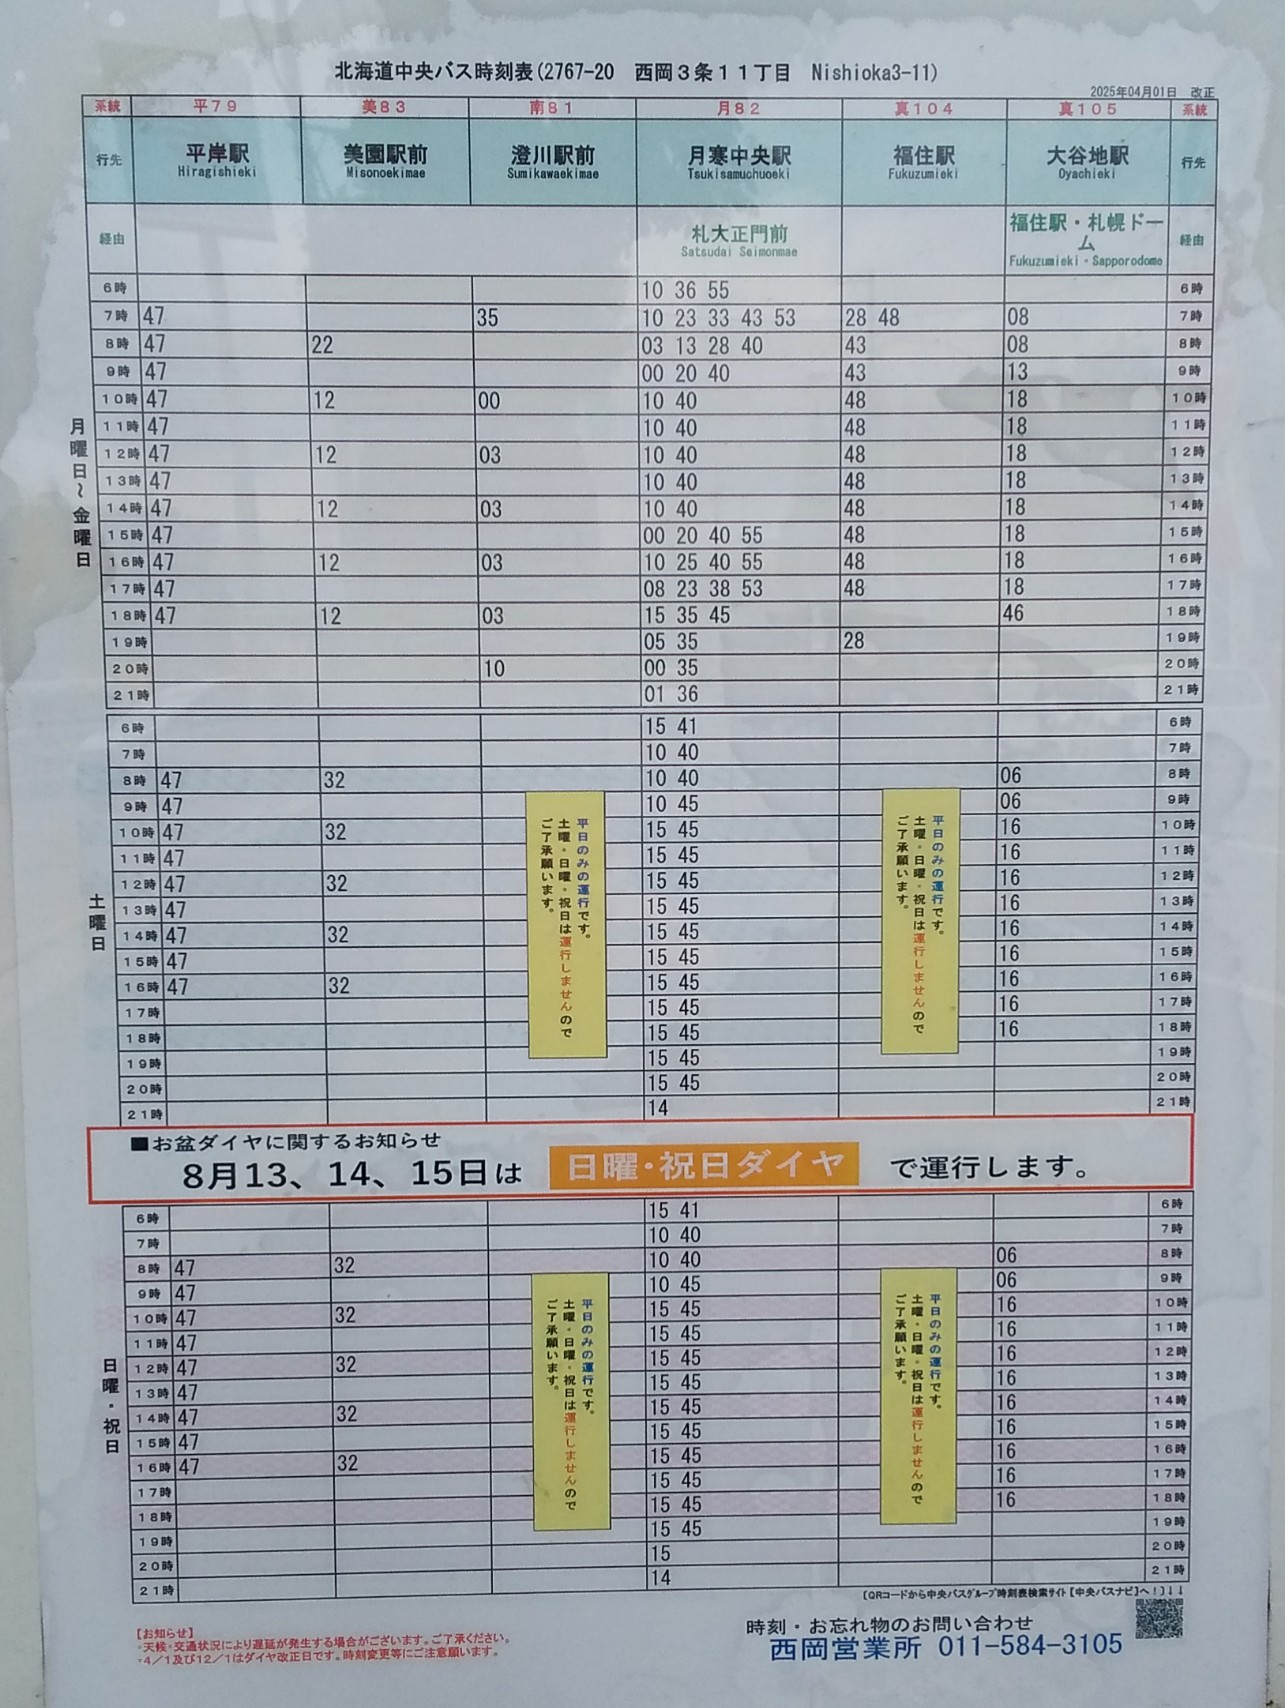 北海道中央バス時刻表(2767-20　西岡３条１１丁目　Nishioka3-11)
2025年04月01日　改正
系統 平７９ 美８３ 南８１ 月８２ 真１０４ 真１０５ 系統
行先 平岸駅 美園駅前 澄川駅前 月寒中央駅 福住駅 大谷地駅 行先
Hiragishieki Misonoekimae Sumikawaekimae Tsukisamuchuoeki Fukuzumieki Oyachieki
経由 札大正門前 福住駅・札幌ドーム 経由
Satsudai Seimonmae Fukuzumieki・Sapporodome
月曜日～金曜日
6時 10 36 55 6時
7時 47 35 10 23 33 43 53 28 48 08 7時
8時 47 22 03 13 28 40 43 08 8時
9時 47 00 20 40 43 13 9時
10時 47 12 00 10 40 48 18 10時
11時 47 10 40 48 18 11時
12時 47 12 03 10 40 48 18 12時
13時 47 10 40 48 18 13時
14時 47 12 03 10 40 48 18 14時
15時 47 00 20 40 55 48 18 15時
16時 47 12 03 10 25 40 55 48 18 16時
17時 47 08 23 38 53 48 18 17時
18時 47 12 03 15 35 45 46 18時
19時 05 35 28 19時
20時 10 00 35 20時
21時 01 36 21時
土曜日
6時 15 41 6時
7時 10 40 7時
8時 47 32 10 40 06 8時
9時 47 10 45 06 9時
10時 47 32 15 45 16 10時
11時 47 15 45 16 11時
12時 47 32 15 45 16 12時
13時 47 15 45 16 13時
14時 47 32 15 45 16 14時
15時 47 15 45 16 15時
16時 47 32 15 45 16 16時
17時 15 45 16 17時
18時 15 45 16 18時
19時 15 45 19時
20時 15 45 20時
21時 14 21時
平日のみの運行です。
土曜・日曜・祝日は運行しませんので
ご了承願います。
平日のみの運行です。
土曜・日曜・祝日は運行しませんので
ご了承願います。
■お盆ダイヤに関するお知らせ
8月13、14、15日は 日曜・祝日ダイヤ で運行します。
日曜・祝日
6時 15 41 6時
7時 10 40 7時
8時 47 32 10 40 06 8時
9時 47 10 45 06 9時
10時 47 32 15 45 16 10時
11時 47 15 45 16 11時
12時 47 32 15 45 16 12時
13時 47 15 45 16 13時
14時 47 32 15 45 16 14時
15時 47 15 45 16 15時
16時 47 32 15 45 16 16時
17時 15 45 16 17時
18時 15 45 16 18時
19時 15 45 19時
20時 15 20時
21時 14 21時
平日のみの運行です。
土曜・日曜・祝日は運行しませんので
ご了承願います。
平日のみの運行です。
土曜・日曜・祝日は運行しませんので
ご了承願います。
［QRコードから中央バスグループ時刻表検索サイト【中央バスナビ】へ！］↓↓
【お知らせ】
・天候・交通状況により遅延が発生する場合がございます。ご了承ください。
・4／1及び12／1はダイヤ改正日です。時刻変更等にご注意願います。
時刻・お忘れ物のお問い合わせ
西岡営業所 011-584-3105